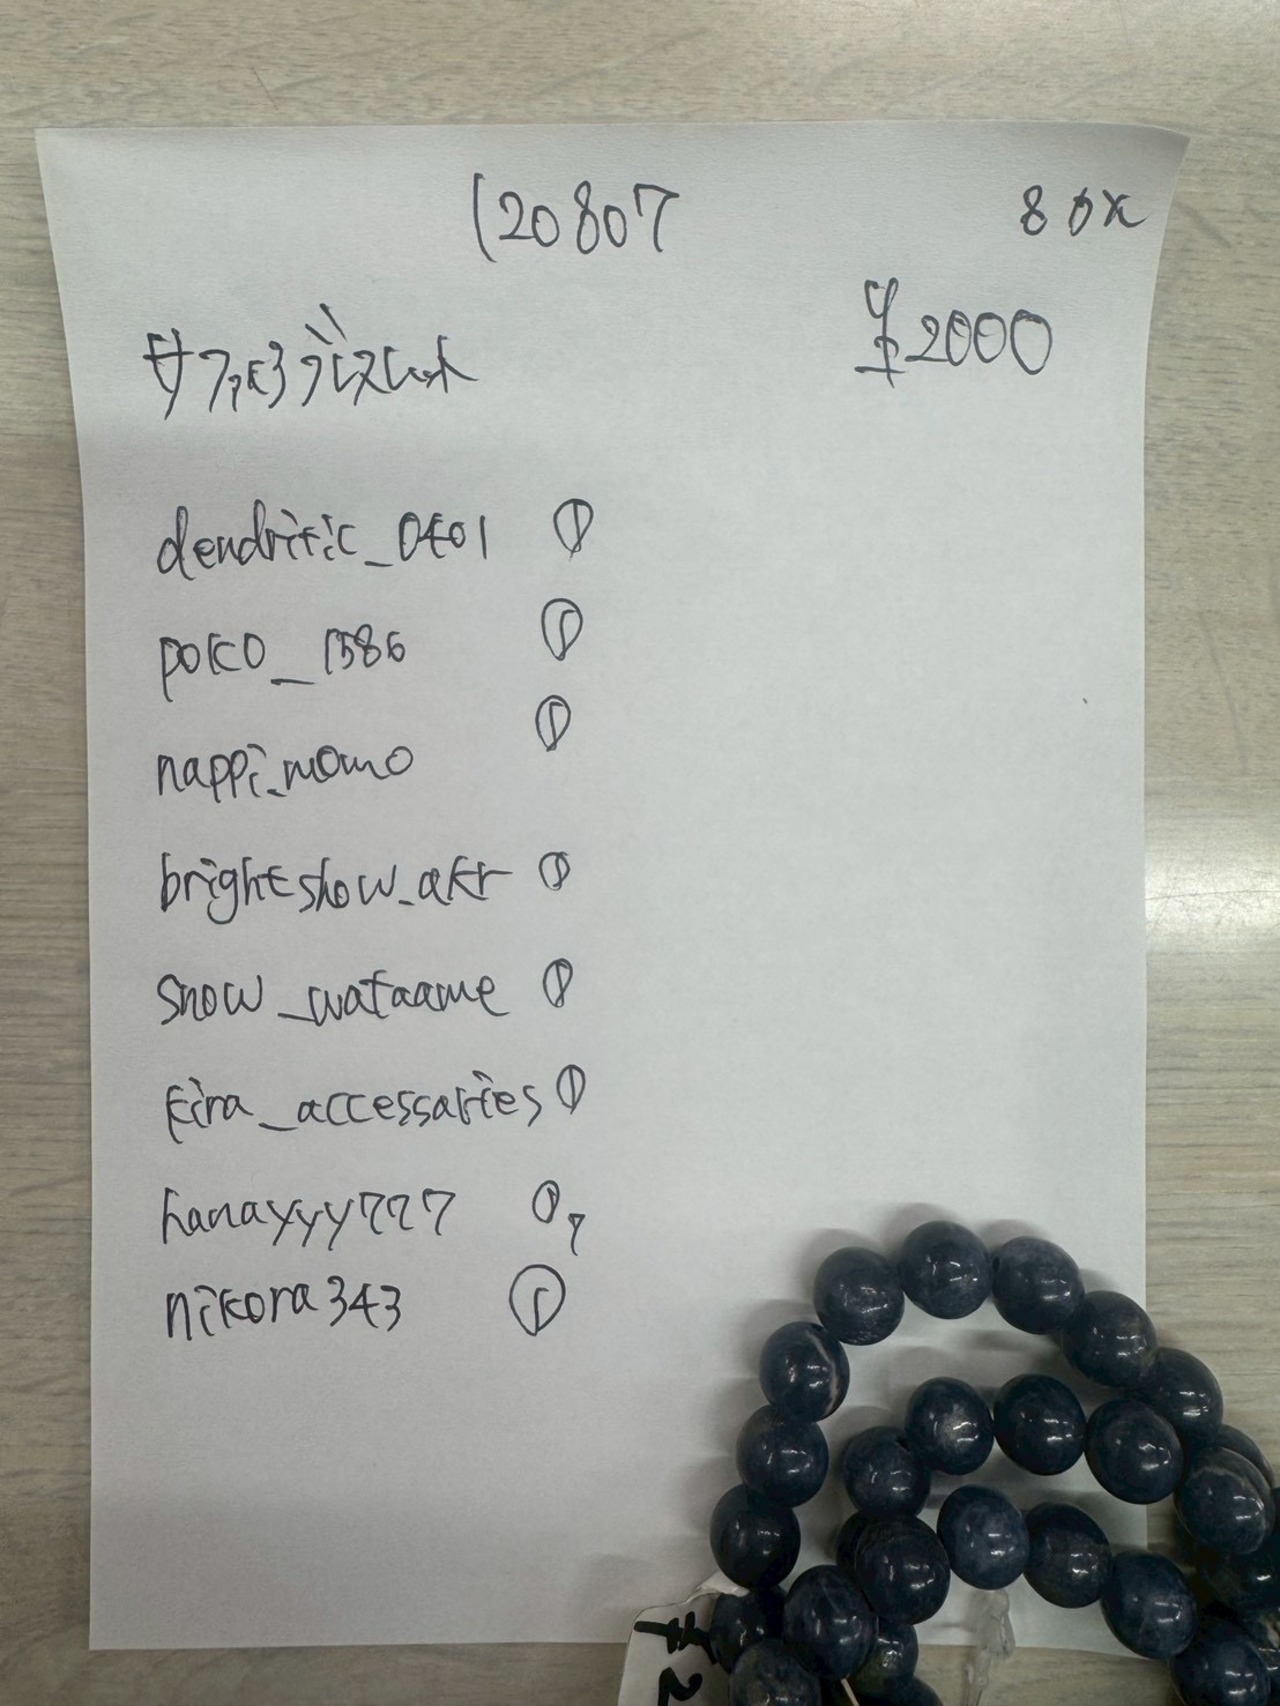 120807
¥2000
サファイヤブレスレット
dendritic_0401 ①
poko_1586 ①
nappi_momo ①
brightshow_akr ①
snow_wataame ①
kira_accessaries ①
hanayyy777 ①
nikora343 ①